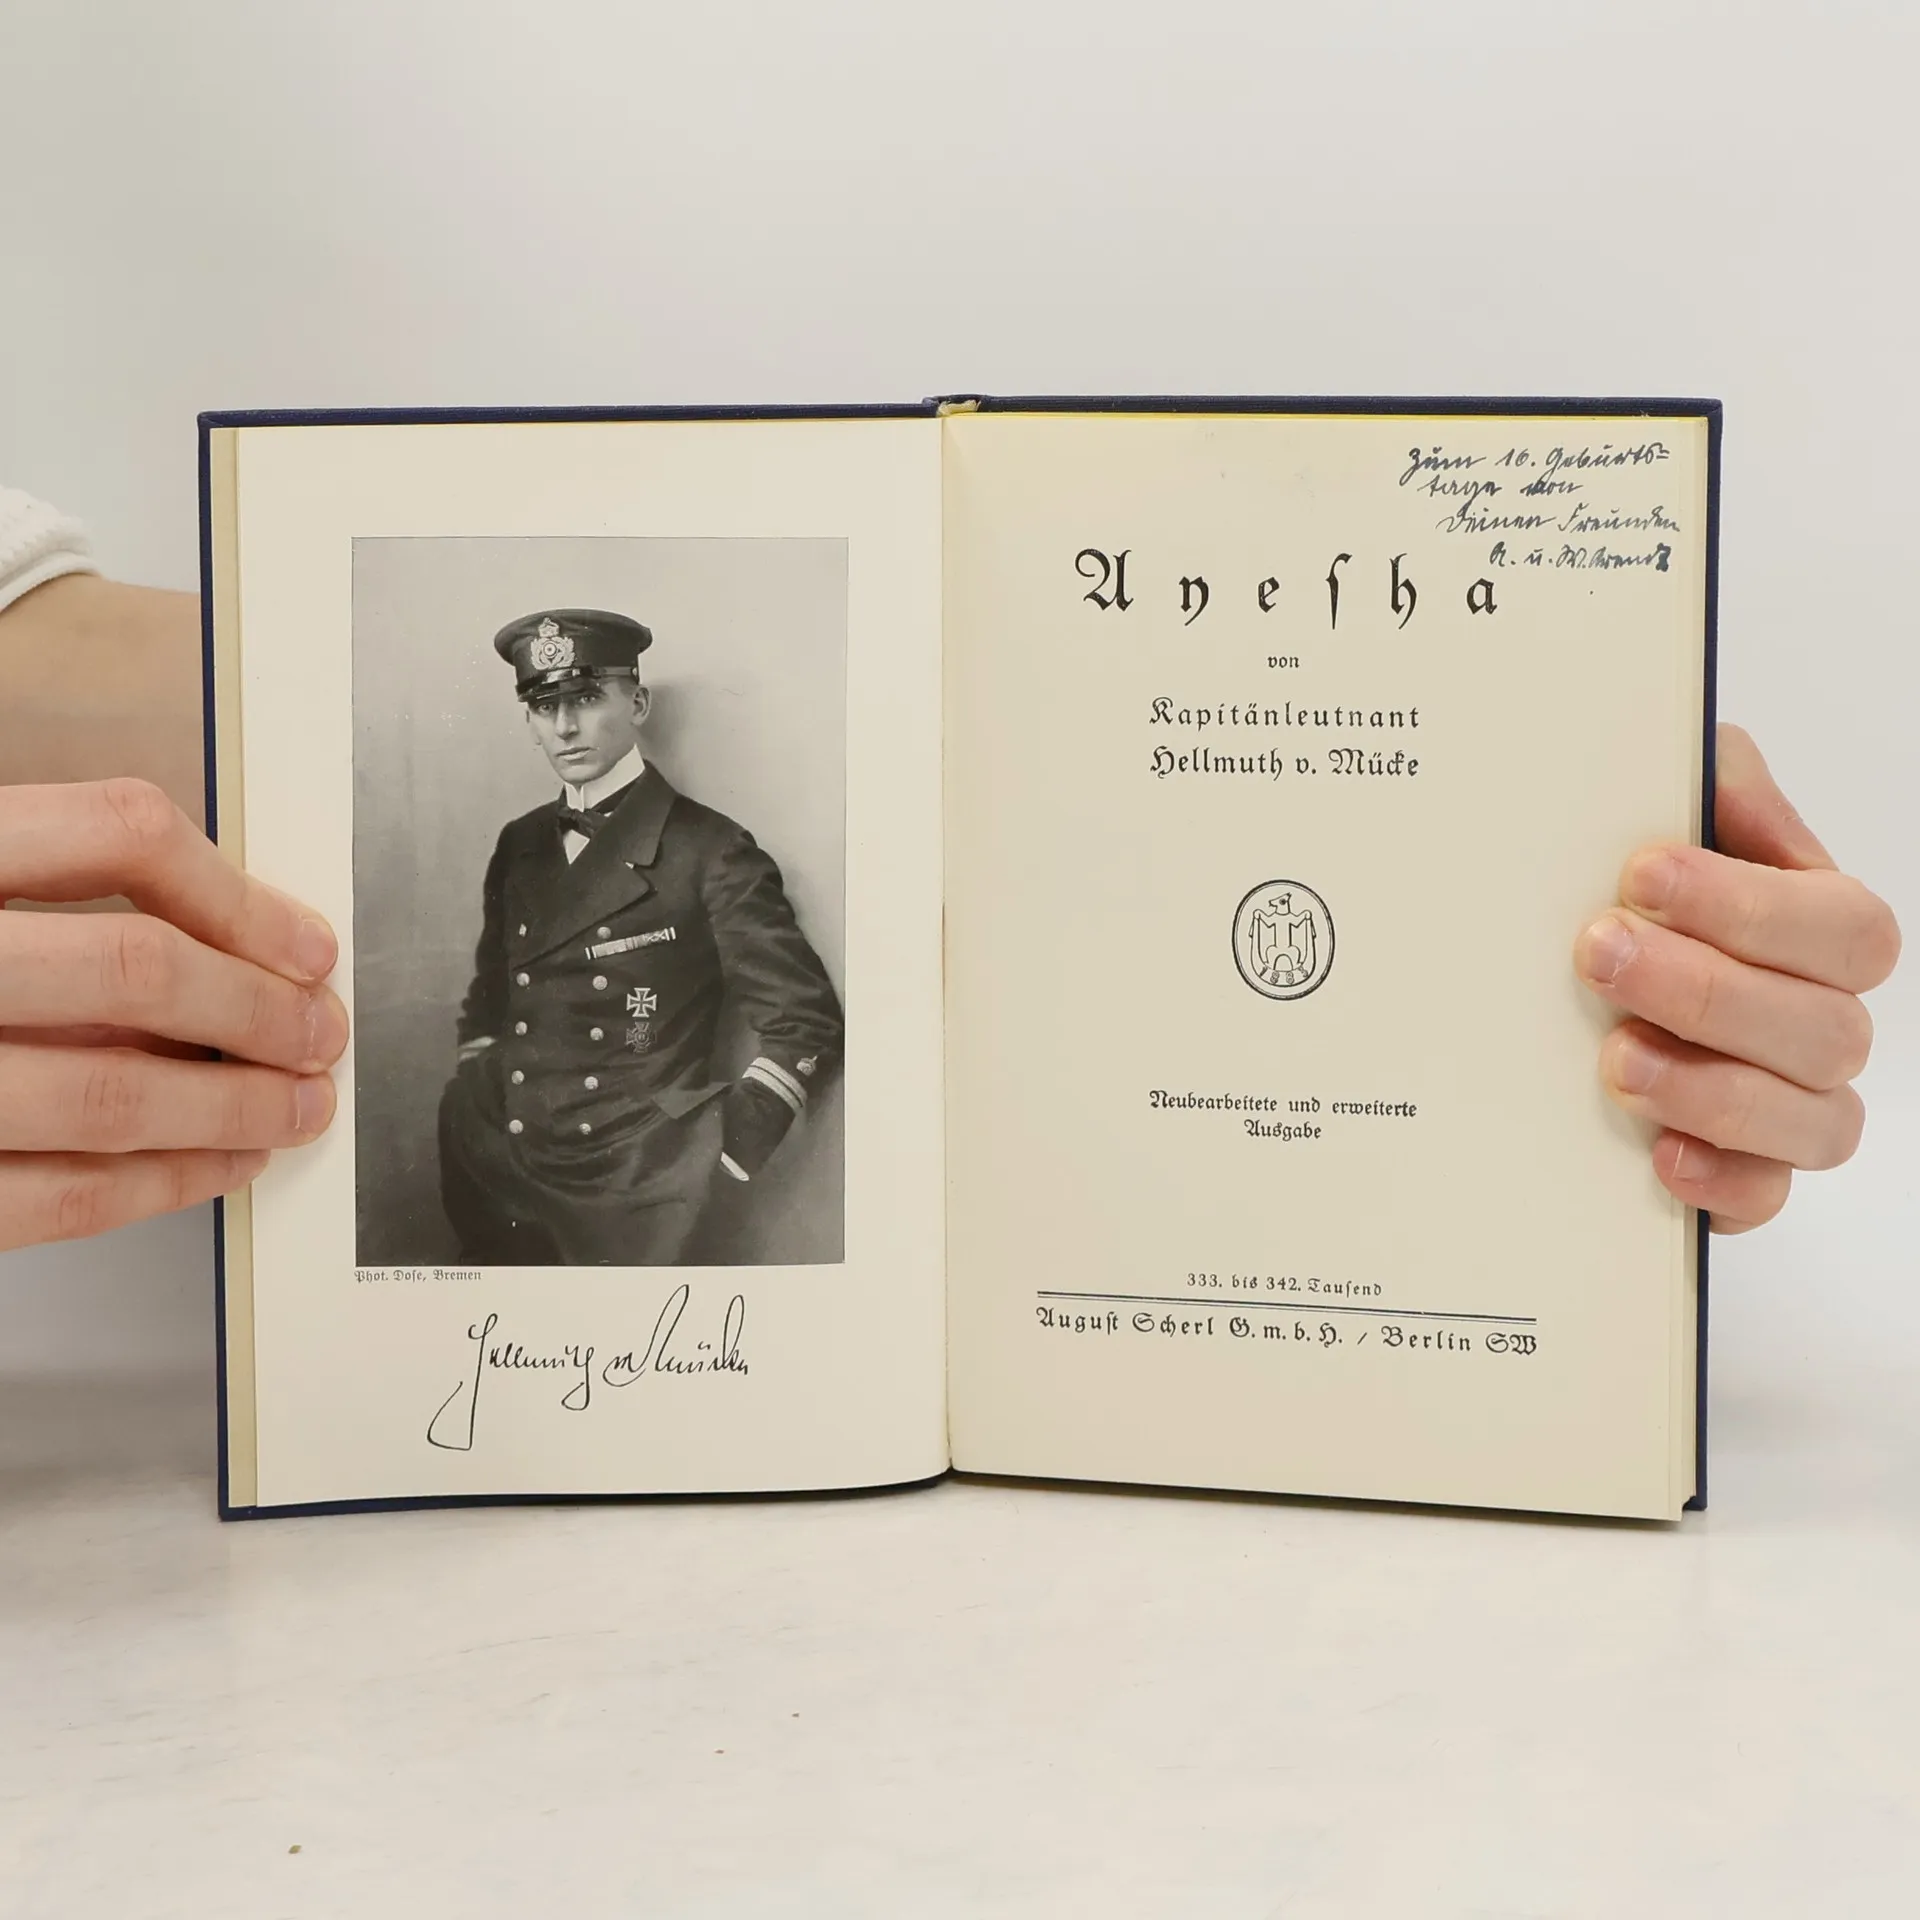 Phot. Dose, Bremen
Hellmuth v Mücke
Zum 16. Geburts=
tage von
Deinen Freunden
A. u. W. Arendt
Ayeſha
von
Kapitänleutnant
Hellmuth v. Mücke
1883
Neubearbeitete und erweiterte
Ausgabe
333. bis 342. Tauſend
Auguſt Scherl G. m. b. H. / Berlin SW